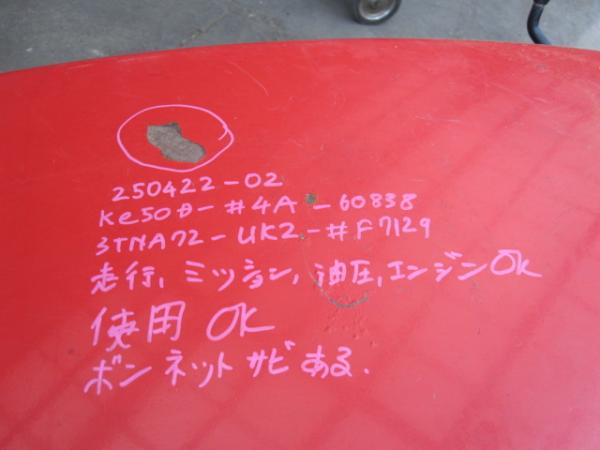 250422-02
Ke50B-#4A-60838
3TNA72-UK2-#F7129
走行,ミッション,油圧,エンジンOK
使用OK
ボンネットサビある.